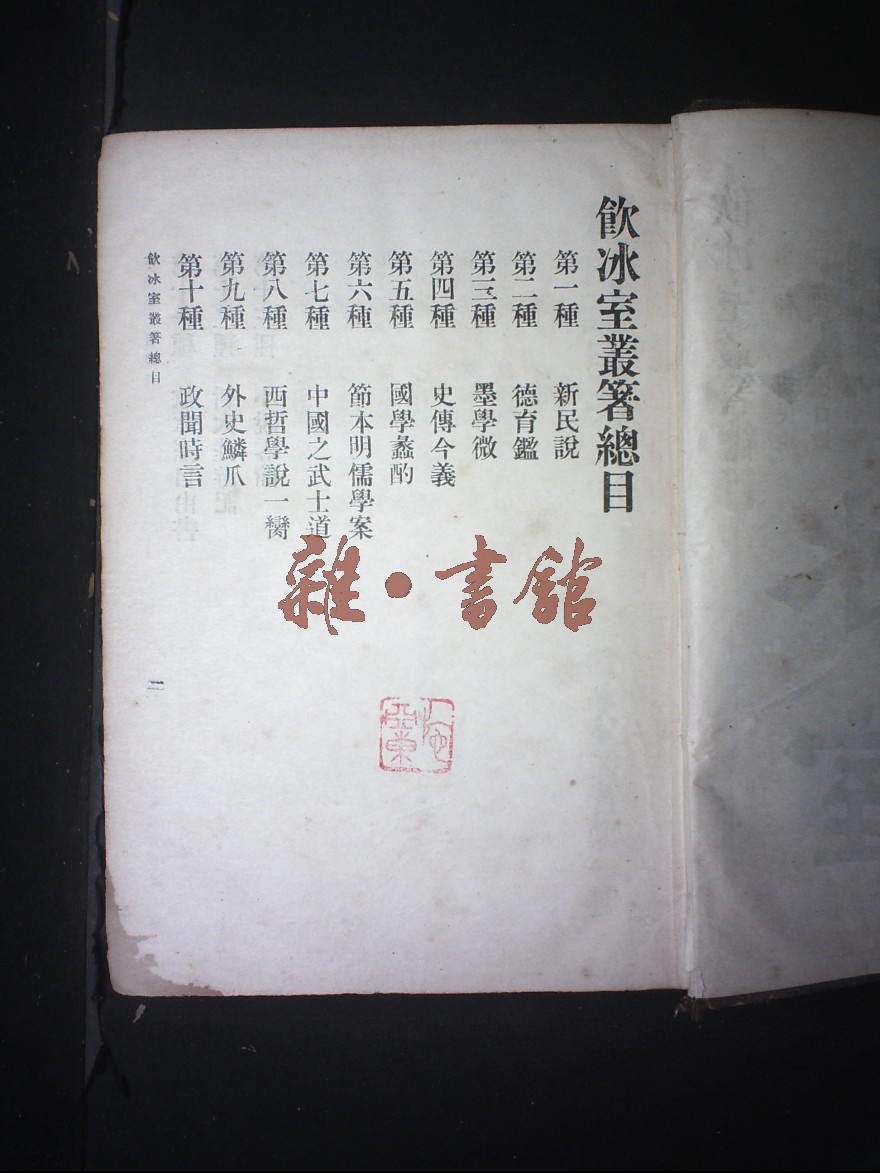 飲冰室叢箸總目
第一種 新民說
第二種 德育鑑
第三種 墨學微
第四種 史傳今義
第五種 國學蠡酌
第六種 節本明儒學案
第七種 中國之武士道
第八種 西哲學說一臠
第九種 外史鱗爪
第十種 政聞時言
飲冰室叢箸總目
二
雜·書館